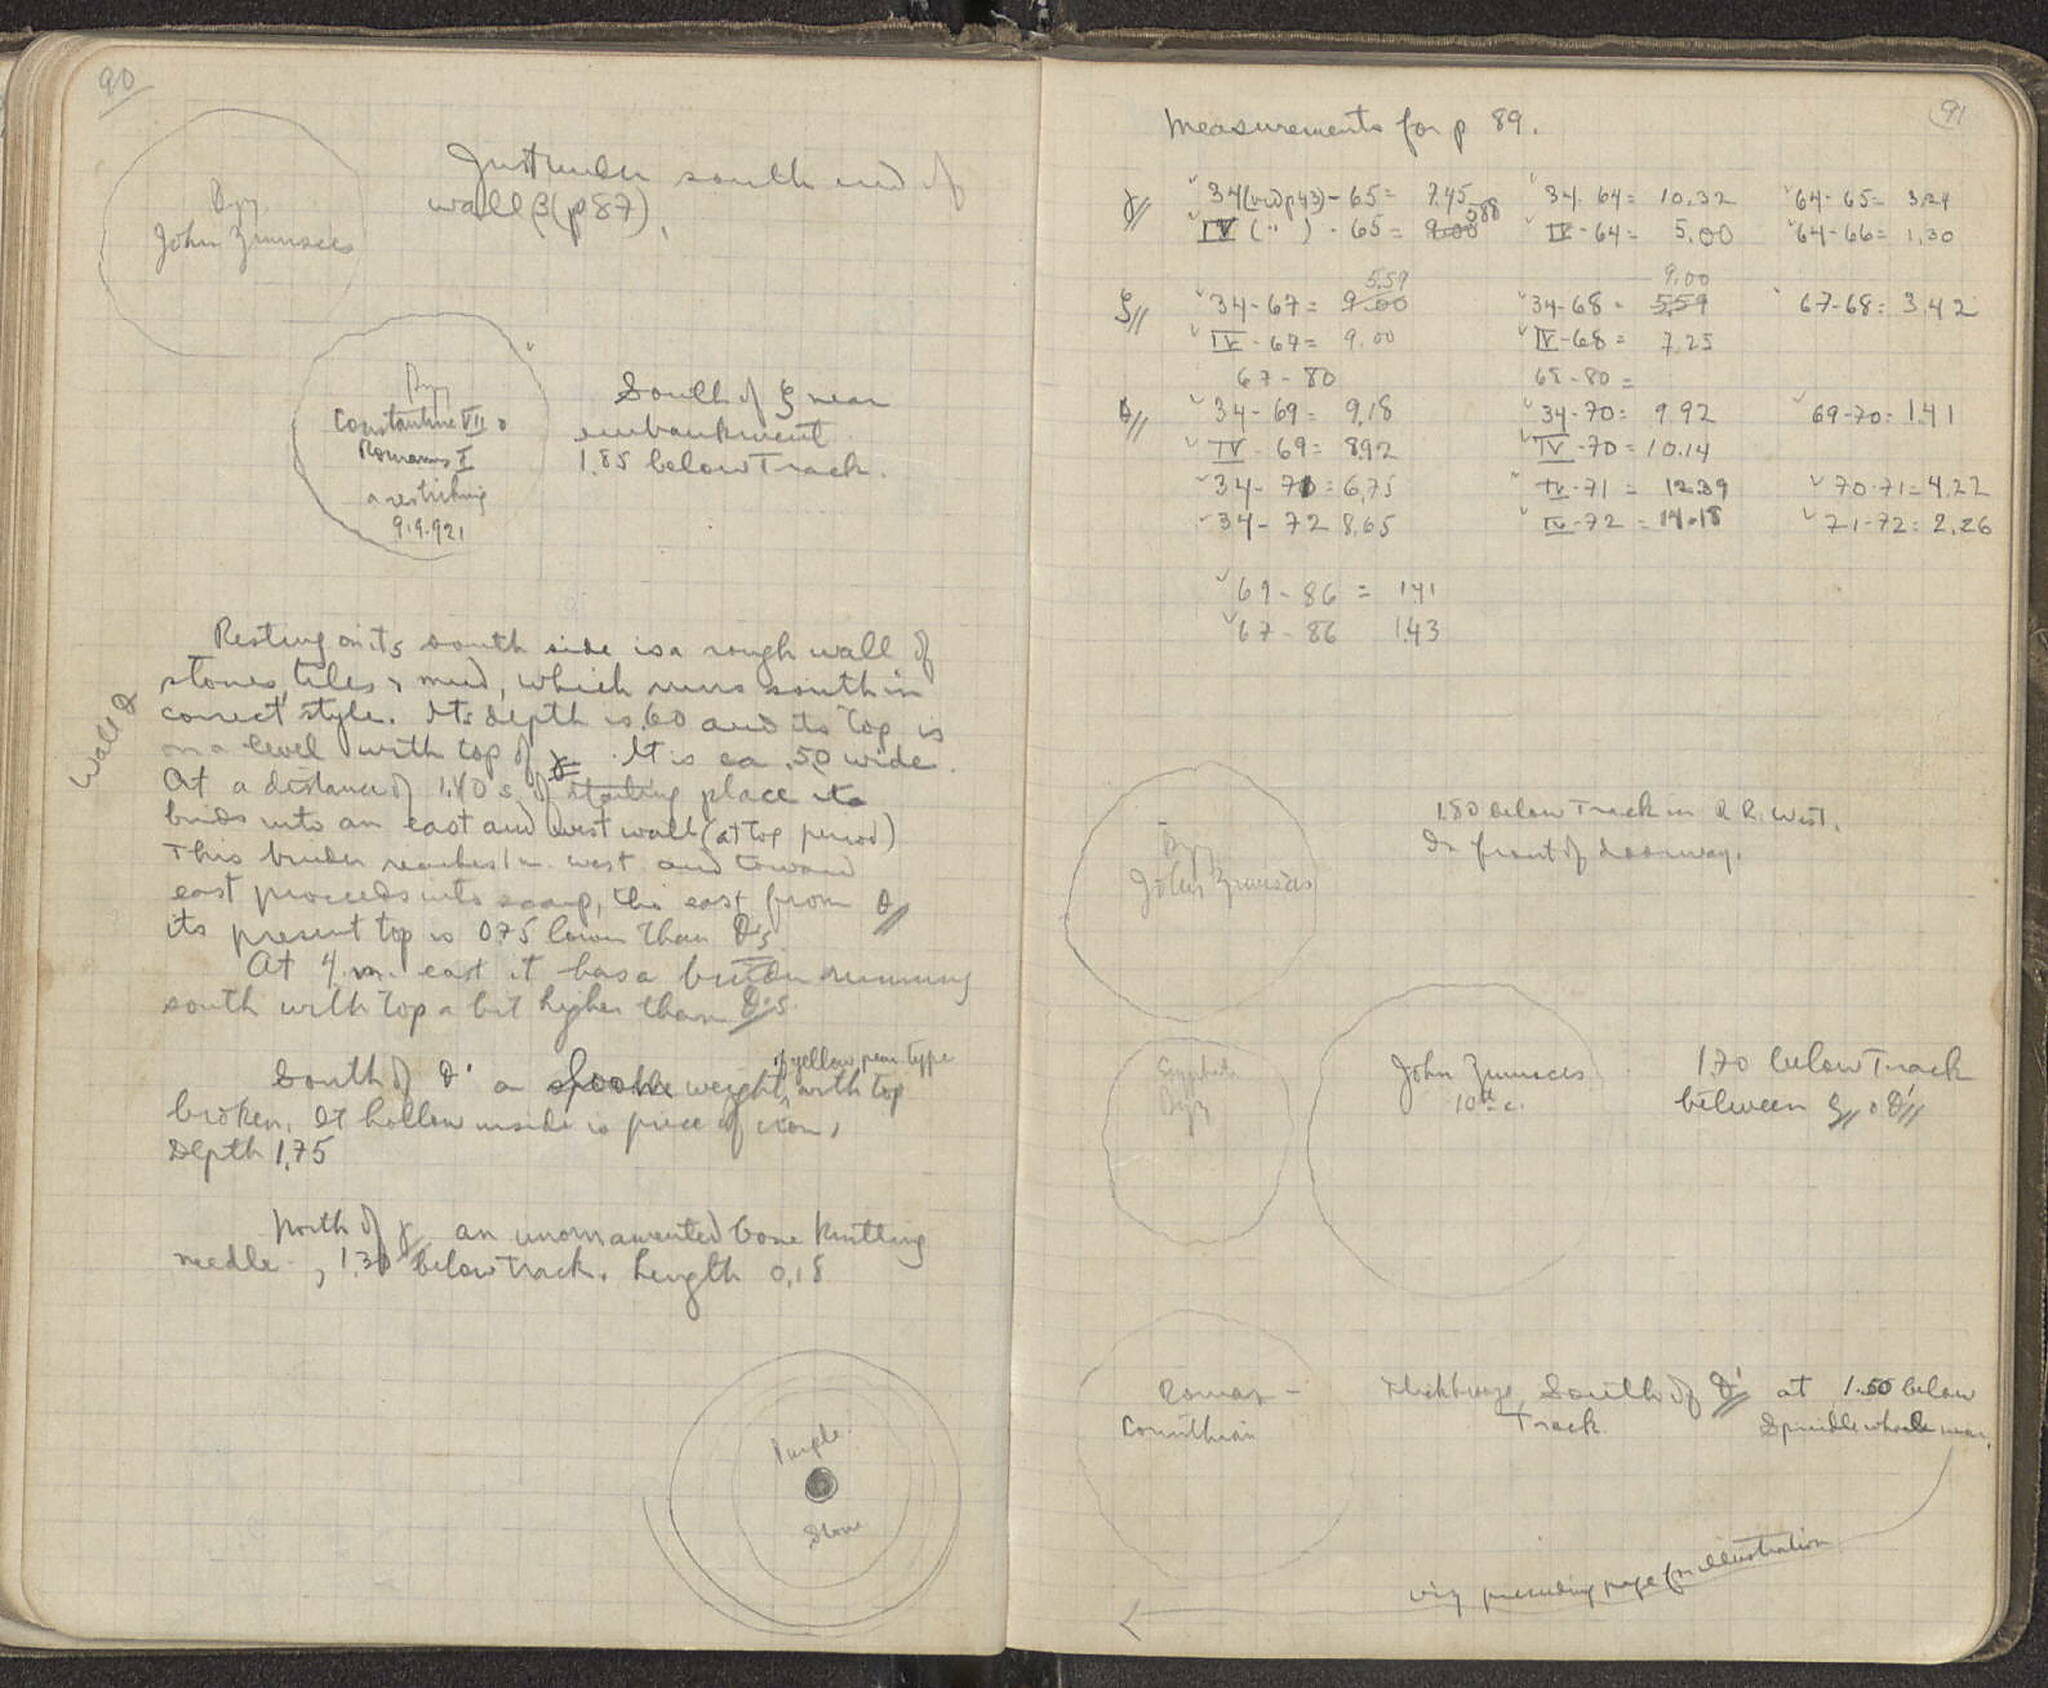 90
Byz.
John Zimisces
Just under south end of
wall β (p 87).
Byz
Constantine VII &
Romanus I
a restriking
919-921
South of ξ near
embankment
1.85 below Track.
Wall θ
Resting on its south side is a rough wall of
stones, tiles & mud, which runs south in
correct style. Its depth is .60 and its top is
on a level with top of γ. It is ca .50 wide.
At a distance of 1.40 s. of starting place it
binds into an east and west wall (at top period)
This binder reaches 1 m. west and toward
east proceeds into scarp, this east from θ
its present top is 0.75 lower than θ's.
At 4 m. east it has a binder running
south with top a bit higher than θ's.
of yellow pear type
South of θ' a spoole weight, with top
broken. In hollow inside is piece of iron,
Depth 1.75
North of γ an unornamented bone knitting
needle, 1.30 below track. Length 0.18
Purple
Stone
91
Measurements for p 89.
γ 34 (vid p 43) - 65 = 7.45 34-64 = 10.32 64-65 = 3.24
5.88
IV ( " ) - 65 = 9.00 IV-64 = 5.00 64-66 = 1.30
5.59 9.00
ξ 34-67 = 9.00 34-68 = 5.59 67-68 = 3.42
IV-67 = 9.00 IV-68 = 7.25
67-80 68-80 =
θ 34-69 = 9.18 34-70 = 9.92 69-70 = 1.41
IV-69 = 8.92 IV-70 = 10.14
34-71 = 6.75 IV-71 = 12.39 70-71 = 4.22
34-72 8.65 IV-72 = 14.18 71-72 = 2.26
69-86 = 1.41
67-86 1.43
Byz
John Zimisces
1.80 below Track in R.R. West.
In front of doorway.
Scyphate
Byz
John Zimisces
10th c.
1.70 below Track
between ξ & θ'
Roman-
Corinthian
Thick bronze, South of θ' at 1.50 below
Track. Spindle whorle near.
viz preceding page for illustration